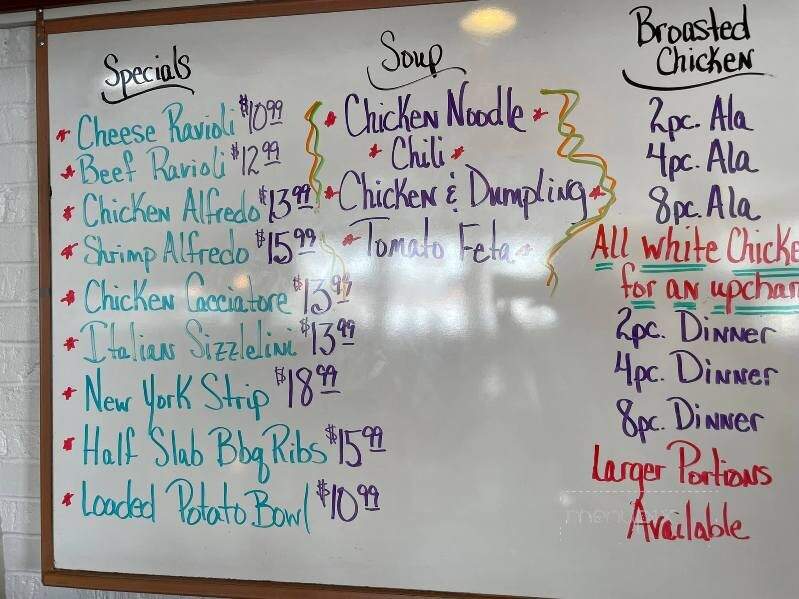 Specials
Cheese Ravioli $10.99
Beef Ravioli $12.99
Chicken Alfredo $13.99
Shrimp Alfredo $15.99
Chicken Cacciatore $13.99
Italian Sizzlelini $13.99
New York Strip $18.99
Half Slab Bbq Ribs $15.99
Loaded Potato Bowl $10.99
Soup
Chicken Noodle
Chili
Chicken & Dumpling
Tomato Feta
Broasted
Chicken
2pc. Ala
4pc. Ala
8pc. Ala
All white Chicke
for an upchar
2pc. Dinner
4pc. Dinner
8pc. Dinner
Larger Portions
Available